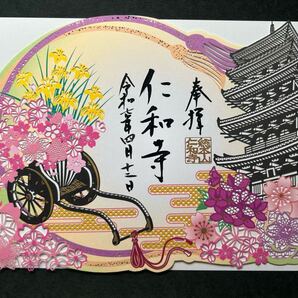 奉拝
仁和寺
令和七年四月十三日